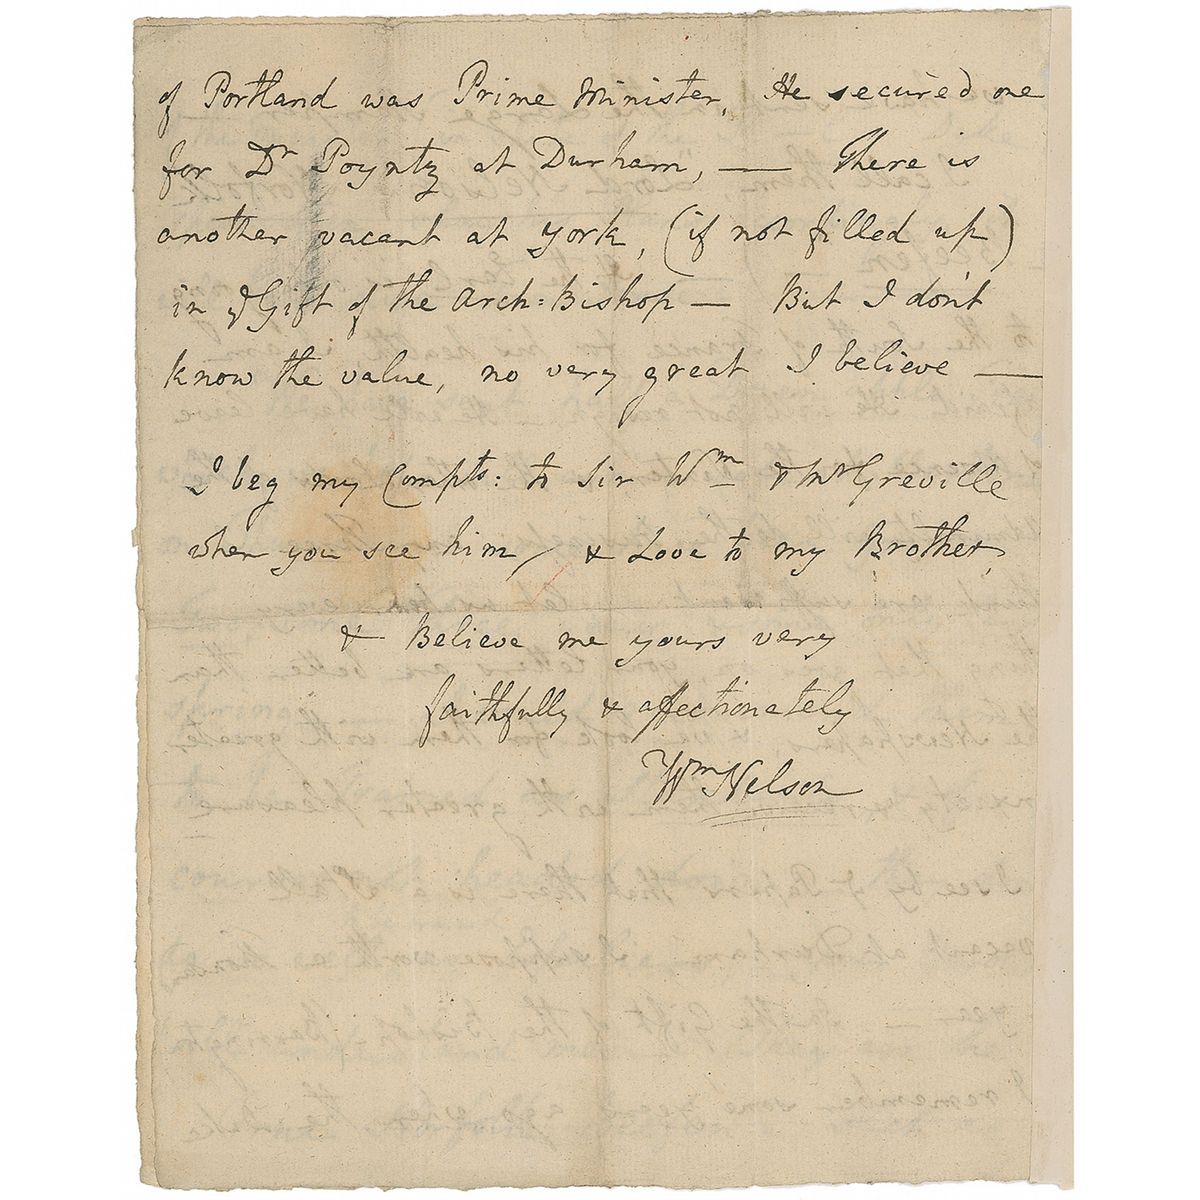 of Portland was Prime Minister, He secured one
for Dr Poyntz at Durham, — There is
another vacant at York, (if not filled up)
in ye Gift of the Arch=Bishop — But I don't
know the value, no very great I believe —
I beg my Compts: to Sir Wm & Mr Greville
when you see him / & Love to my Brother,
& Believe me yours very
faithfully & affectionately
Wm Nelson